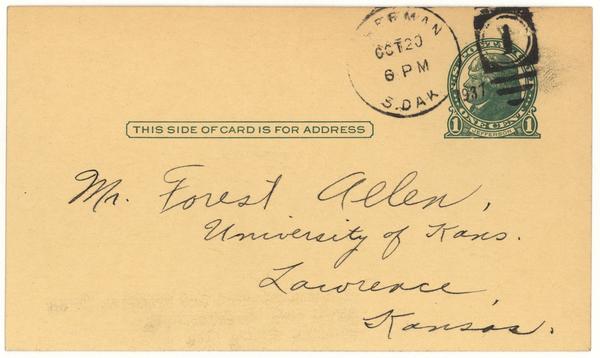 OCT 20
6 PM
S.DAK.
937
1
U.S. POSTAGE
1 ONE CENT 1
JEFFERSON
THIS SIDE OF CARD IS FOR ADDRESS
Mr. Forest Allen,
University of Kans.
Lawrence,
Kansas.